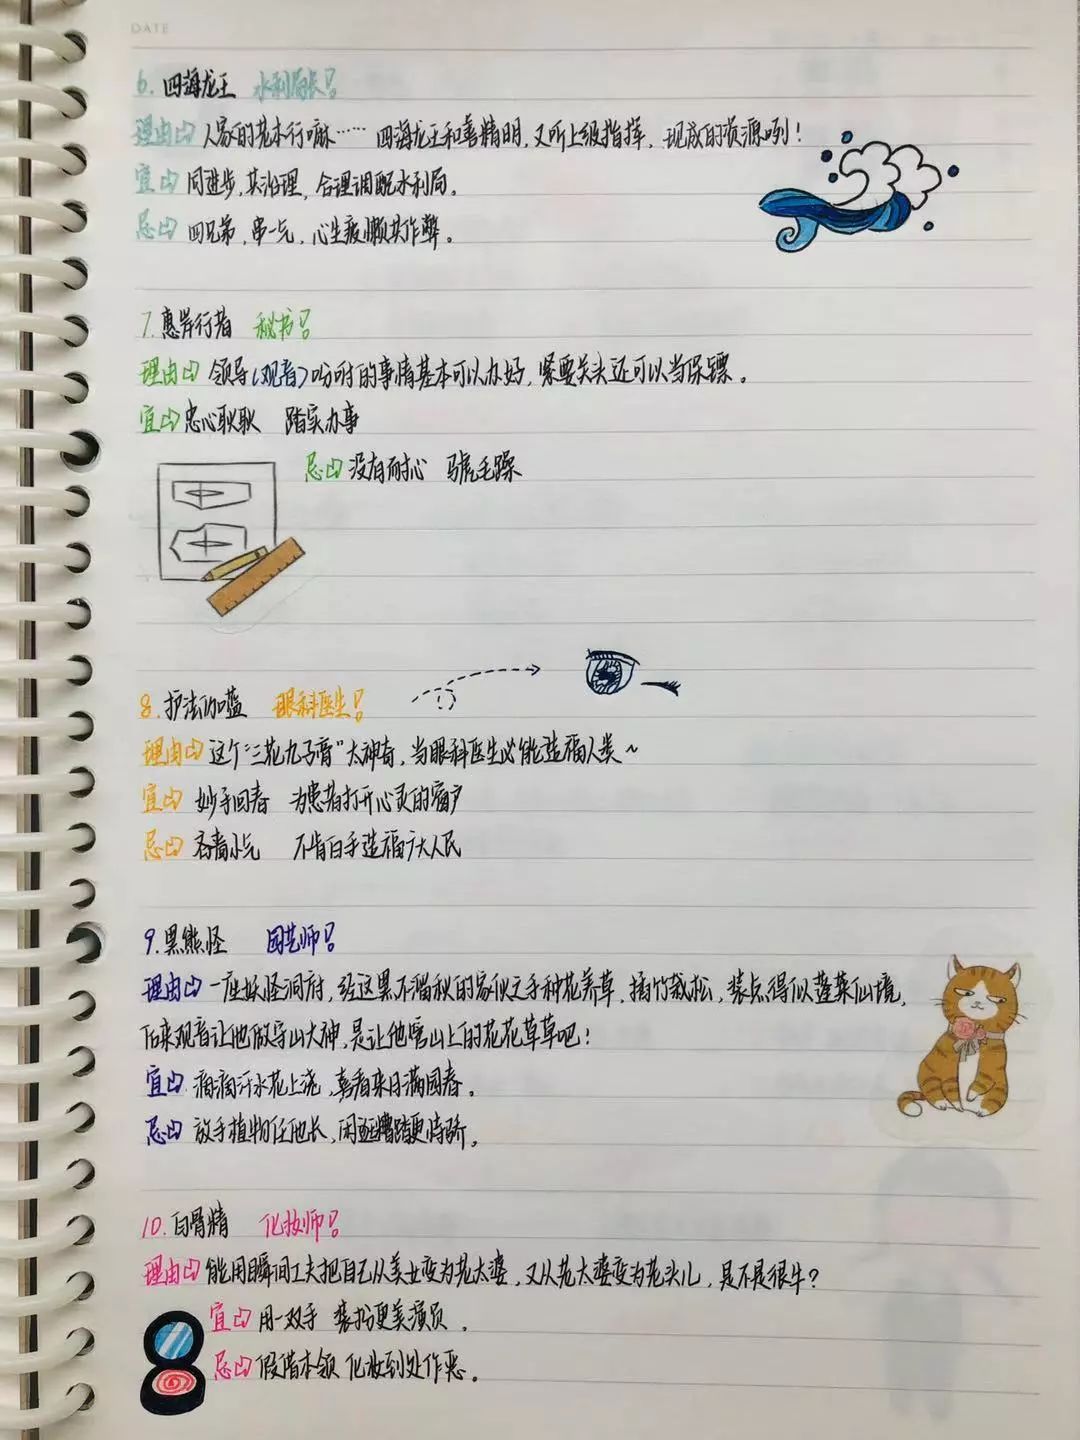 DATE
6. 四海龙王 水利局长！
理由 人家的老本行嘛…… 四海龙王和善精明，又听上级指挥，现成的资源咧！
宜 同进步，共治理，合理调配水利局。
忌 四兄弟，串一气，心生疲懒共作弊。
7. 惠岸行者 秘书！
理由 领导（观音）吩咐的事情基本可以办好，紧要关头还可以当保镖。
宜 忠心耿耿 踏实办事
忌 没有耐心 毛躁
8. 护法伽蓝 眼科医生！
理由 这个“三花九子膏”太神奇，当眼科医生必能造福人类～
宜 妙手回春 为患者打开心灵的窗户
忌 吝啬小气 不肯白手造福广大人民
9. 黑熊怪 园艺师！
理由 一座妖怪洞府，经这黑不溜秋的家伙之手种花养草，插竹栽松，装点得似蓬莱仙境，
后来观音让他做守山大神，是让他管山上的花花草草吧！
宜 滴滴汗水花上浇，喜看来日满园春。
忌 放手植物任他长，闲
10. 白骨精 化妆师！
理由 能用瞬间工夫把自己从美女变为老太婆，又从老太婆变为老头儿，是不是很牛？
宜 用一双手 装扮更美演员。
忌 假借本领 化妆到处作恶。